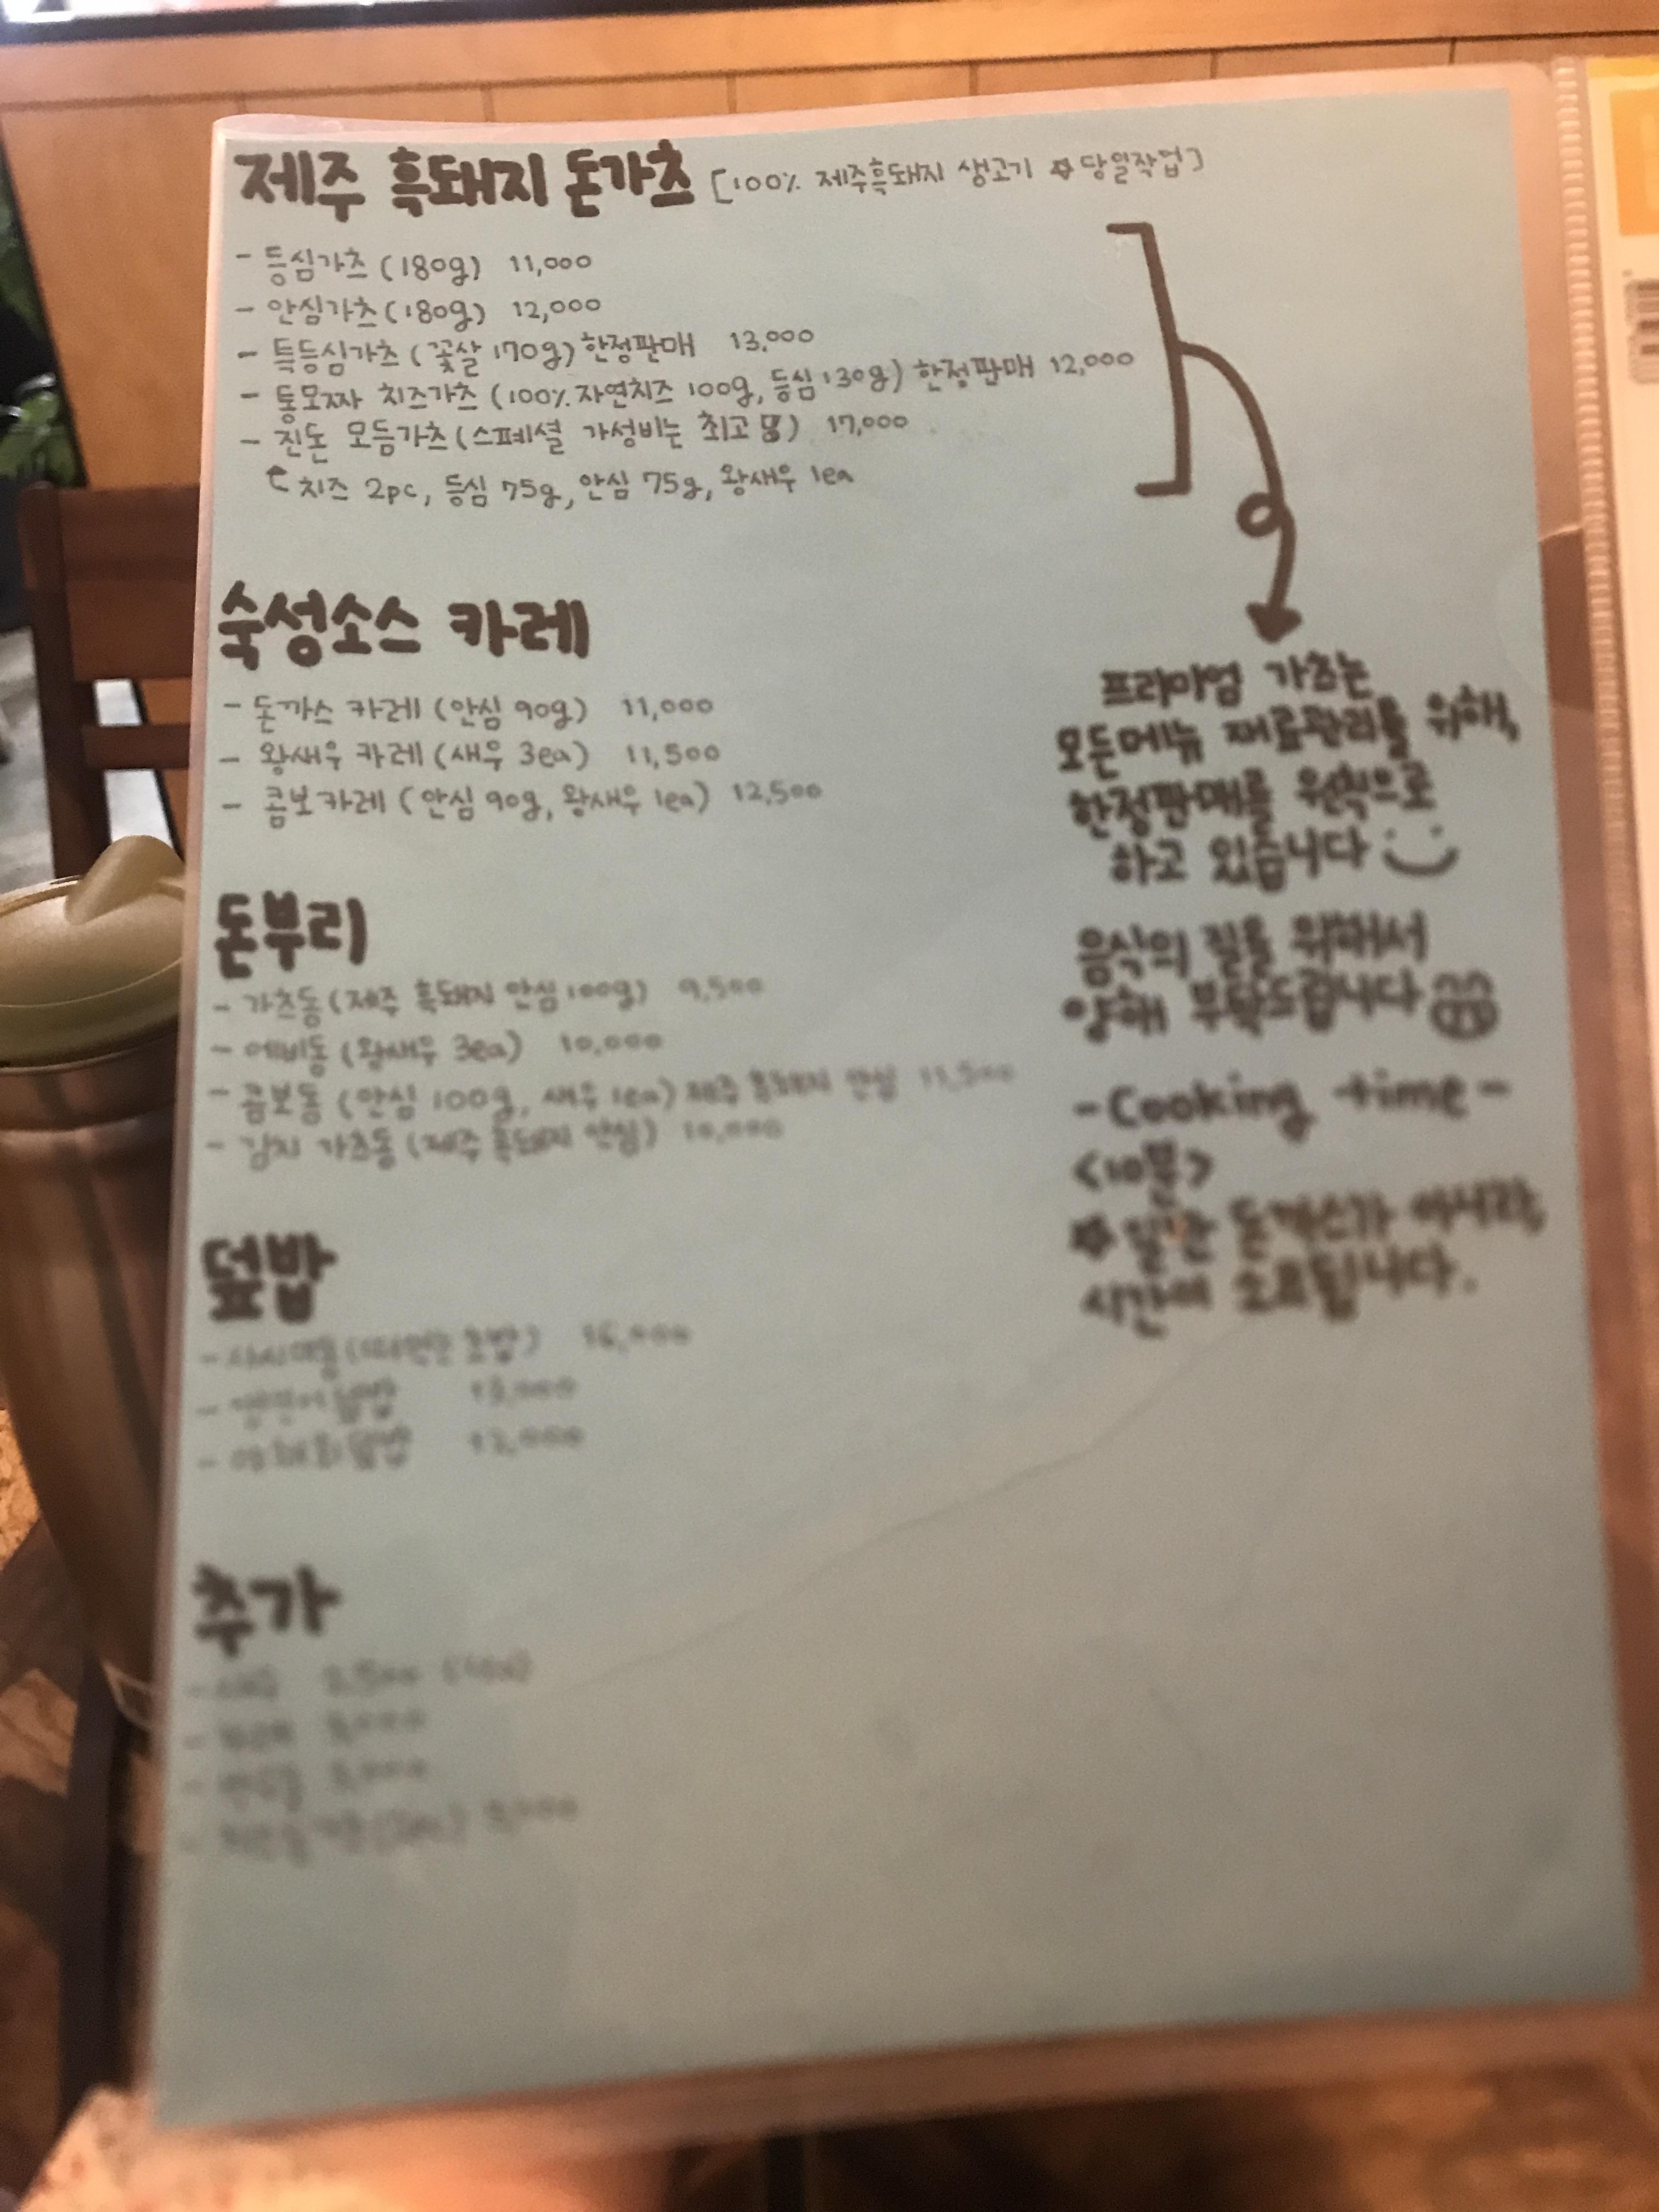 제주 흑돼지 돈가츠 [100% 제주흑돼지 생고기 ☆당일작업]
- 등심가츠 (180g) 11,000
- 안심가츠 (180g) 12,000
- 특등심가츠 (꽃살 170g) 한정판매 13,000
- 통모짜 치즈가츠 (100% 자연치즈 100g, 등심 130g) 한정판매 12,000
- 진돈 모듬가츠 (스페셜 가성비는 최고) 17,000
치즈 2pc, 등심 75g, 안심 75g, 왕새우 1ea
숙성소스 카레
- 돈까스 카레 (안심 90g) 11,000
- 왕새우 카레 (새우 3ea) 11,500
- 콤보카레 (안심 90g, 왕새우 1ea) 12,500
돈부리
- 가츠동 (제주 흑돼지 안심 100g) 9,500
- 에비동 (왕새우 3ea) 10,000
- 콤보동 (안심 100g, 새우 1ea) 제주 흑돼지 안심
- 김치 가츠동 (제주 흑돼지 안심) 10,000
덮밥
추가
프리미엄 가츠는
모든메뉴 재료관리를 위해,
한정판매를 원칙으로
하고 있습니다
음식의 질을 위해서
양해 부탁드립니다
- Cooking time -
<10분>
☆ 일반 돈까스가 아니라,
시간이 소요됩니다.